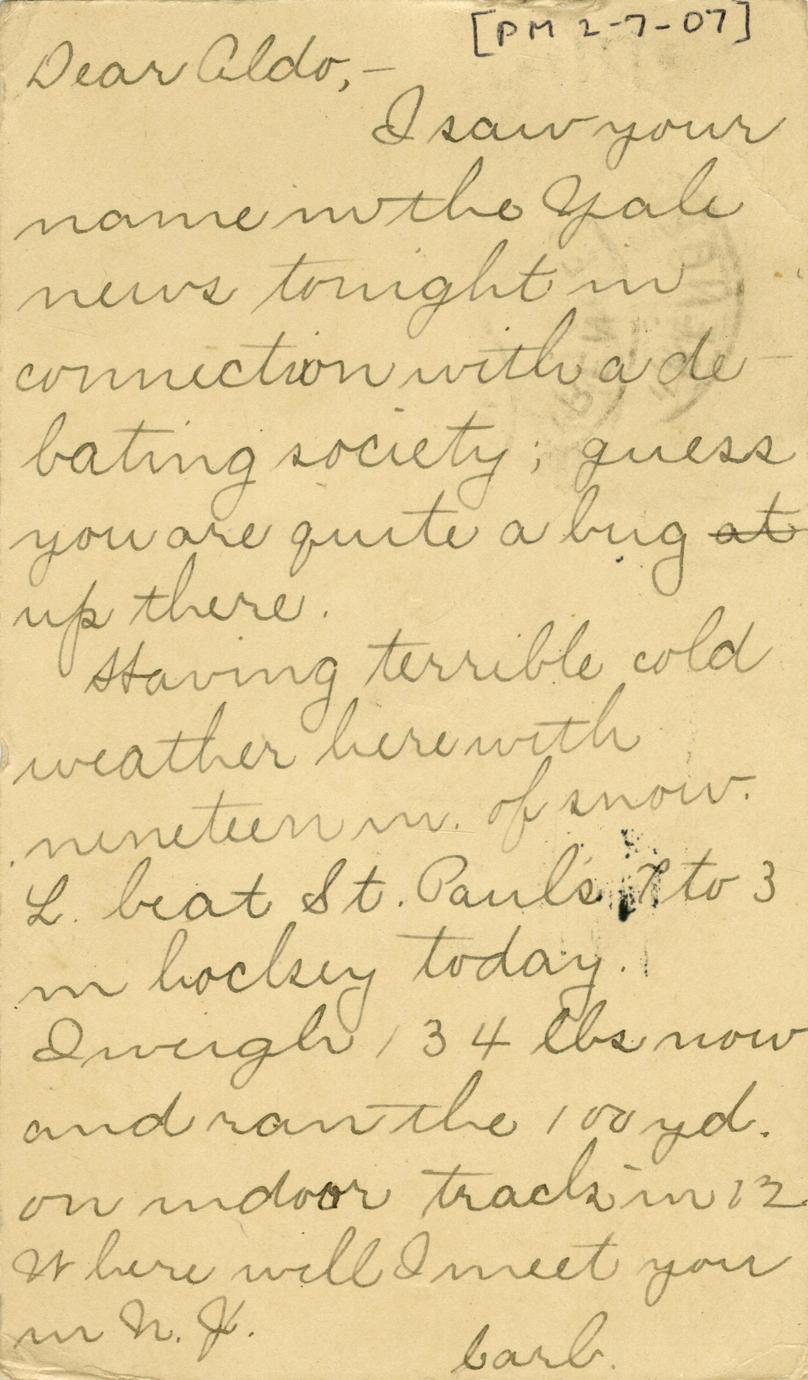 [PM 2-7-07]
Dear Aldo,-
I saw your
name in the Yale
news tonight in
connection with a de-
bating society; guess
you are quite a bug at
up there.
Having terrible cold
weather here with
nineteen in. of snow.
L. beat St. Paul's 7 to 3
in hockey today.
I weigh 134 lbs now
and ran the 100 yd.
on indoor track in 12
Where will I meet you
in N.Y.
Carl.